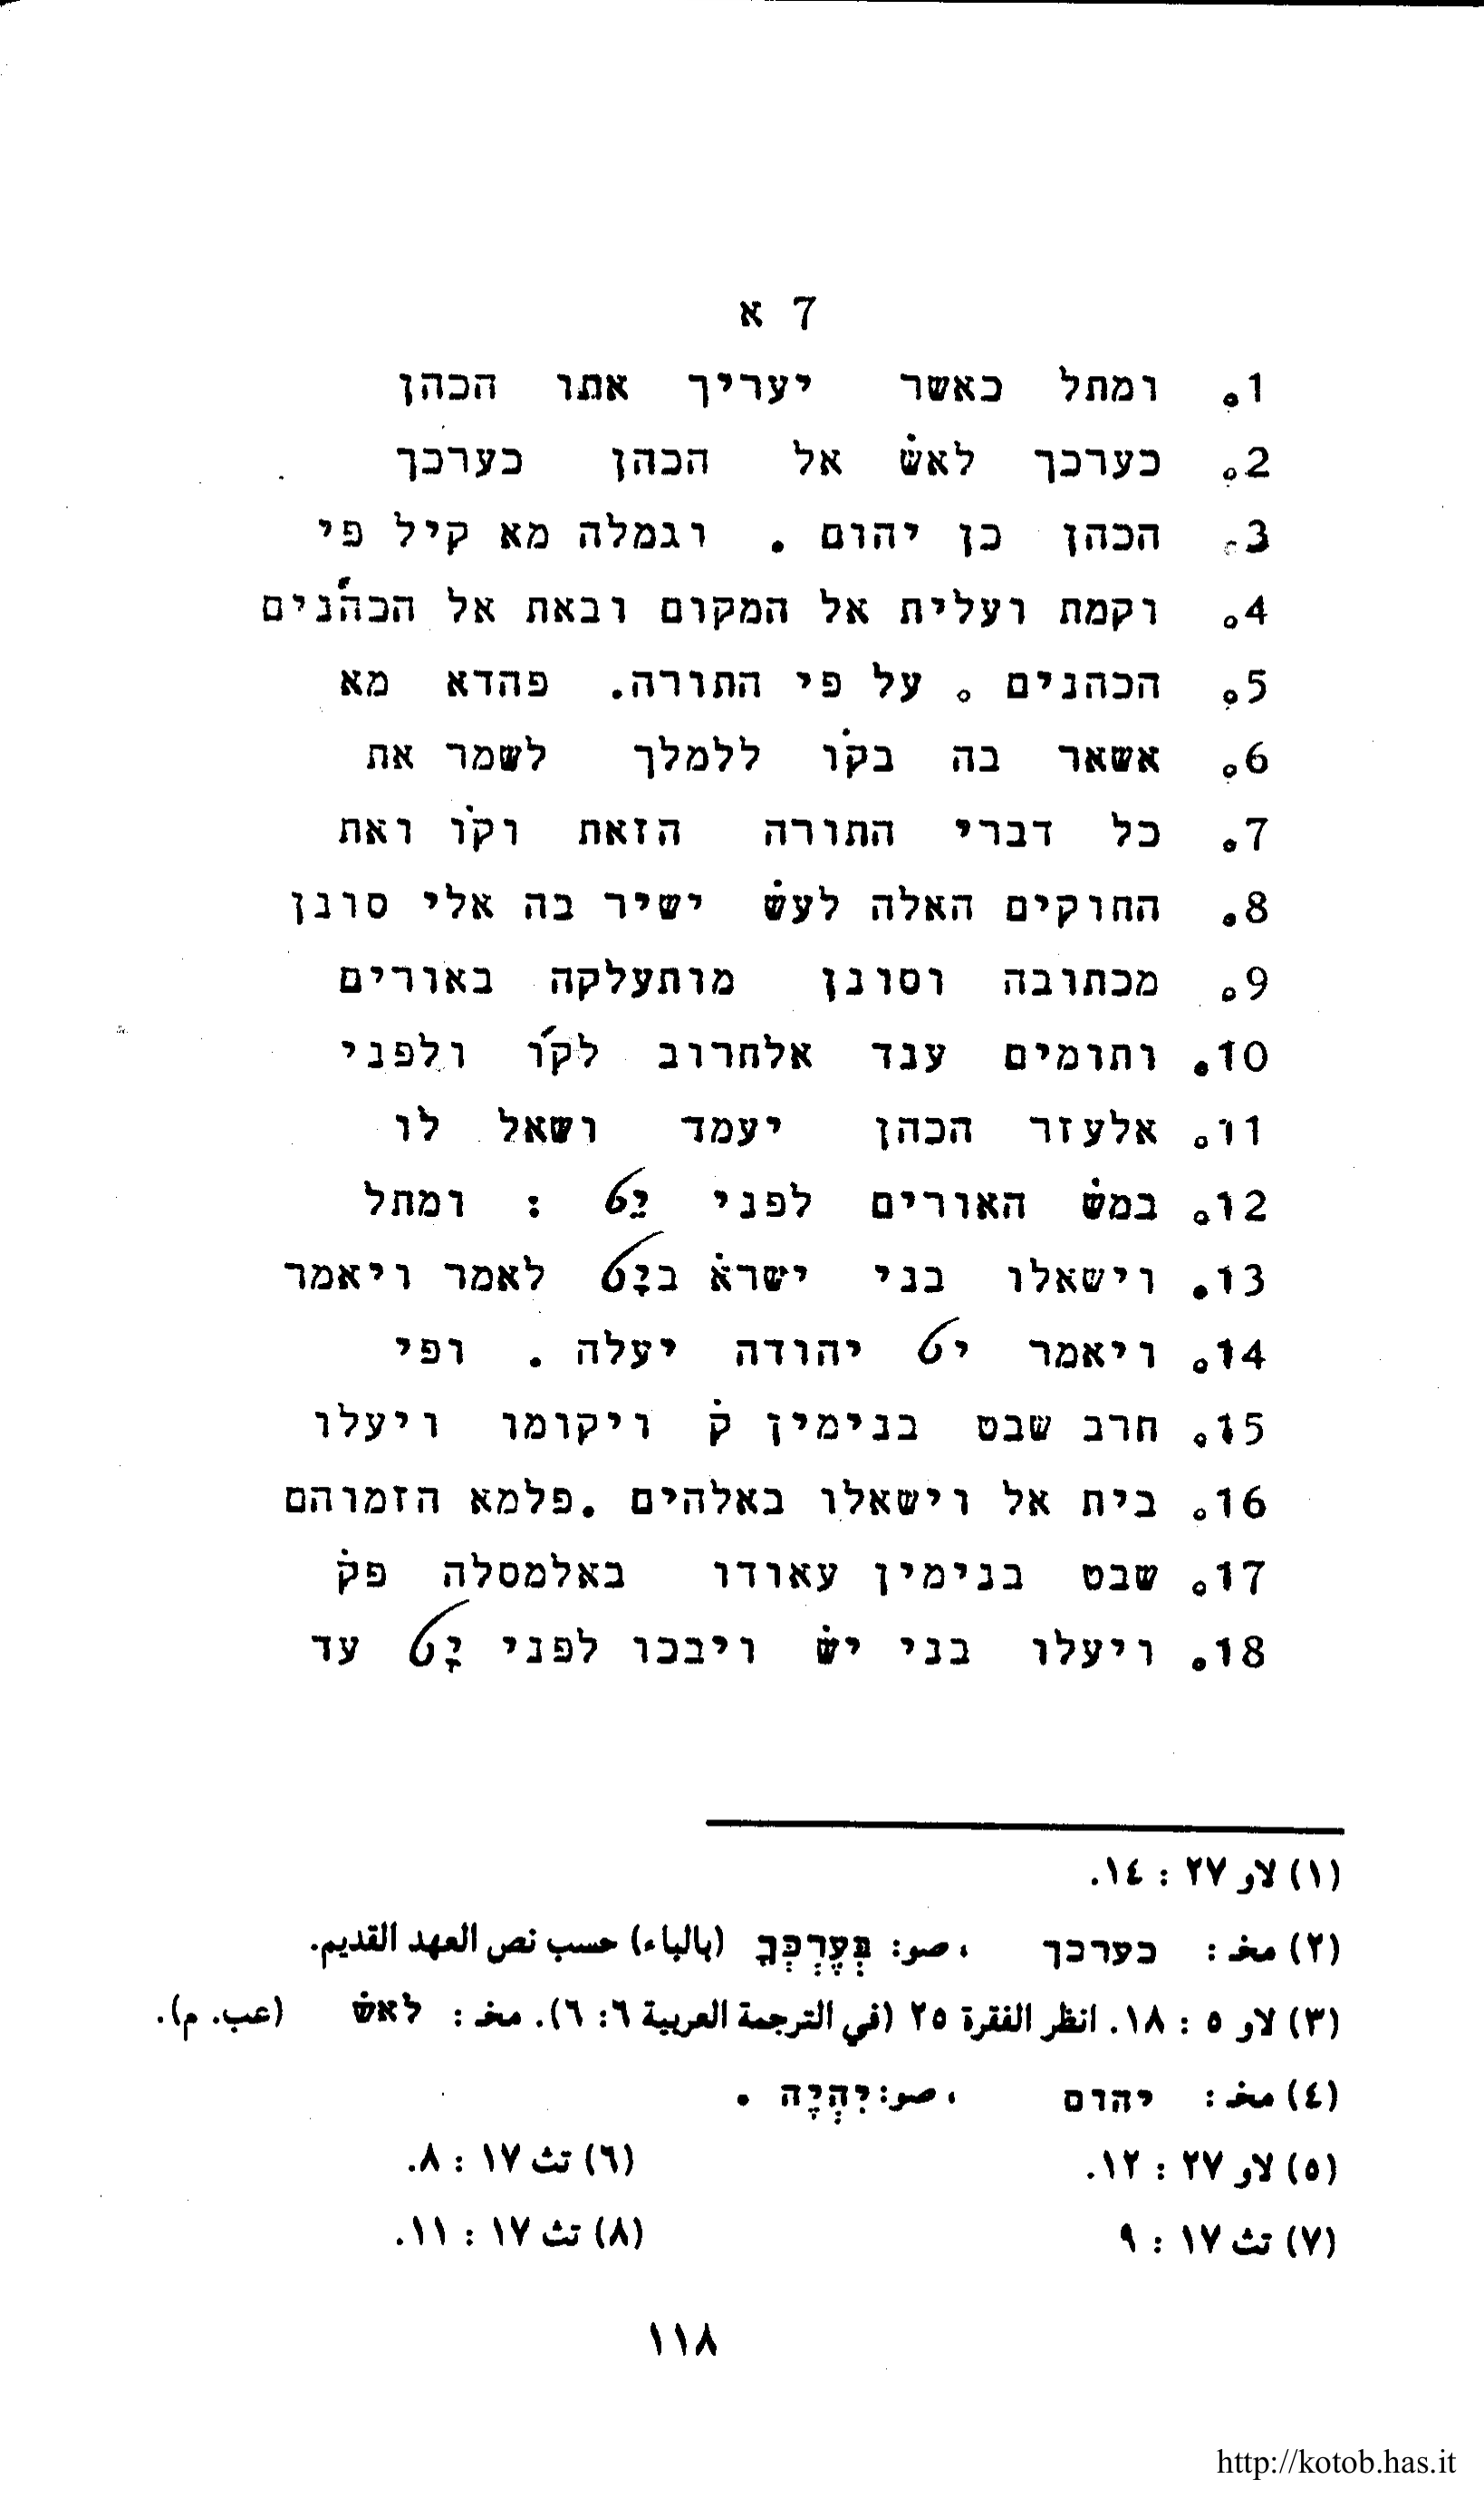 7 א
1. ומתל כאשר יעריך אתו הכהן
2. כערכך לאשׄ אל הכהן כערכך
3. הכהן כן יהום . וגמלה מא קיל פי
4. וקמת ועלית אל המקום ובאת אל הכהנים
5. הכהנים . על פי התורה. פהדא מא
6. אשאר בה בקׄו ללמלך לשמר את
7. כל דברי התורה הזאת וקׄו ואת
8. החוקים האלה לעשׄ ישיר בה אלי סונן
9. מכתובה וסונן מותעלקה באורים
10. ותומים ענד אלחרוב לקׄו ולפני
11. אלעזר הכהן יעמד ושאל לו
12. במשׄ האורים לפני : ומתל
13. וישאלו בני ישראׄ לאמר ויאמר
14. ויאמר יהודה יעלה . ופי
15. חרב שבט בנימין קׄ ויקומו ויעלו
16. בית אל וישאלו באלהים .פלמא הזמוהם
17. שבט בנימין עאודו באלמסלה פקׄ
18. ויעלו בני ישׄ ויבכו לפני עד
(١) لاو ٢٧ : ١٤.
(٢) مخـ : כערכך ، صو: בְּעֶרְכְּךָ (بالباء) حسب نص العهد القديم.
(٣) لاو ٥ : ١٨. انظر الفقرة ٢٥ (في الترجمة العربية ٦: ٦). مخـ : לאשׄ (عب. م).
(٤) مخـ : יהום ، صو: יִהְיֶה .
(٥) لاو ٢٧ : ١٢. (٦) تث ١٧ : ٨.
(٧) تث ١٧ : ٩ (٨) تث ١٧ : ١١.
١١٨
http://kotob.has.it